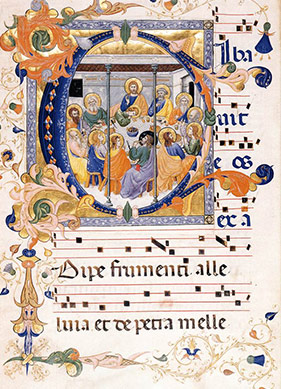 C Iba
uit
e os
ex a
Dipe frumenti alle
luia et de petra melle